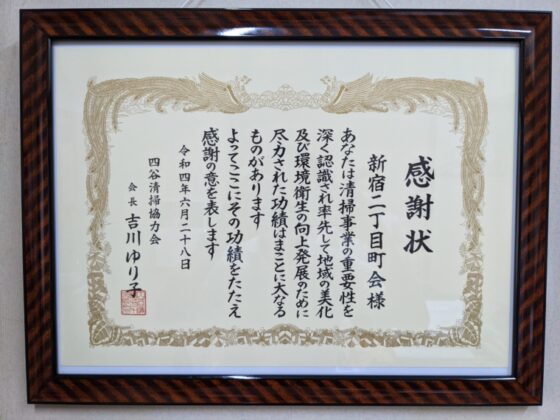 感謝状
新宿二丁目町会様
あなたは清掃事業の重要性を
深く認識され率先して地域の美化
及び環境衛生の向上発展のために
尽力された功績はまことに大なる
ものがあります
よってここにその功績をたたえ
感謝の意を表します
令和四年六月二十八日
四谷清掃協力会
会長 吉川ゆり子